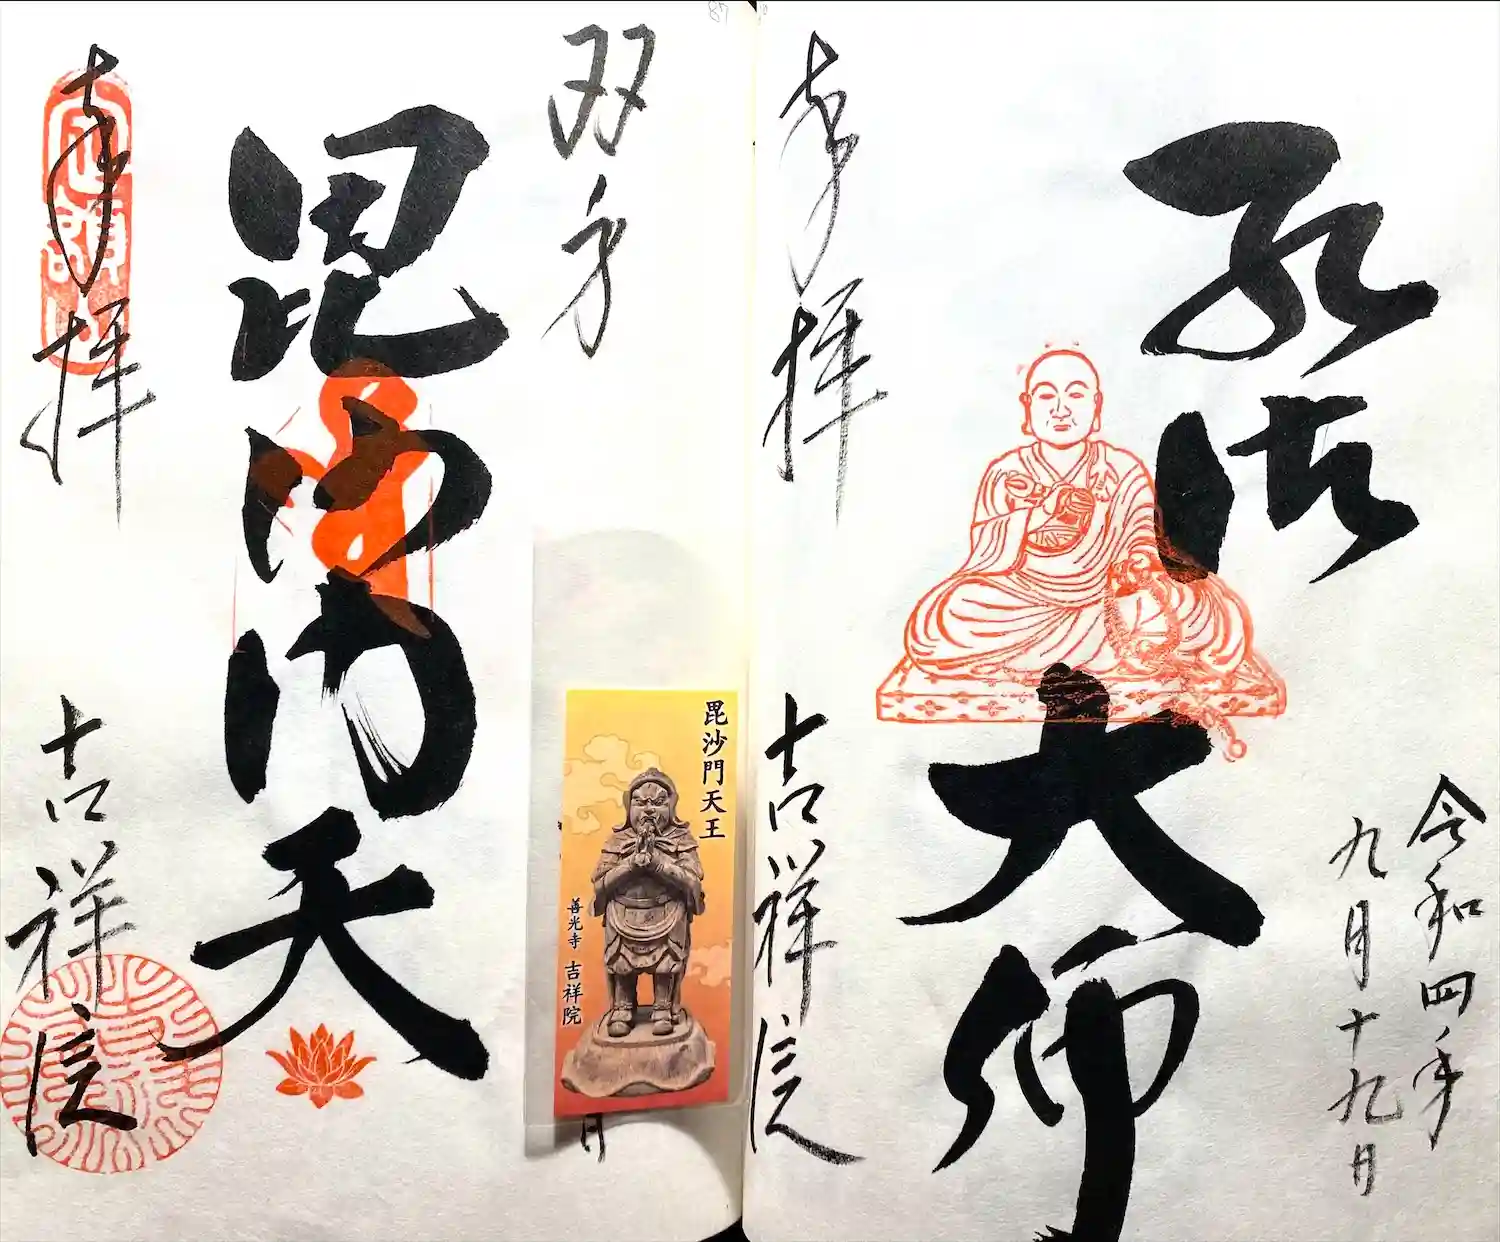 令和四年
九月十九日
弘法大師
奉拝 吉祥院
双身
毘沙門天
奉拝 吉祥院
毘沙門天王
善光寺 吉祥院